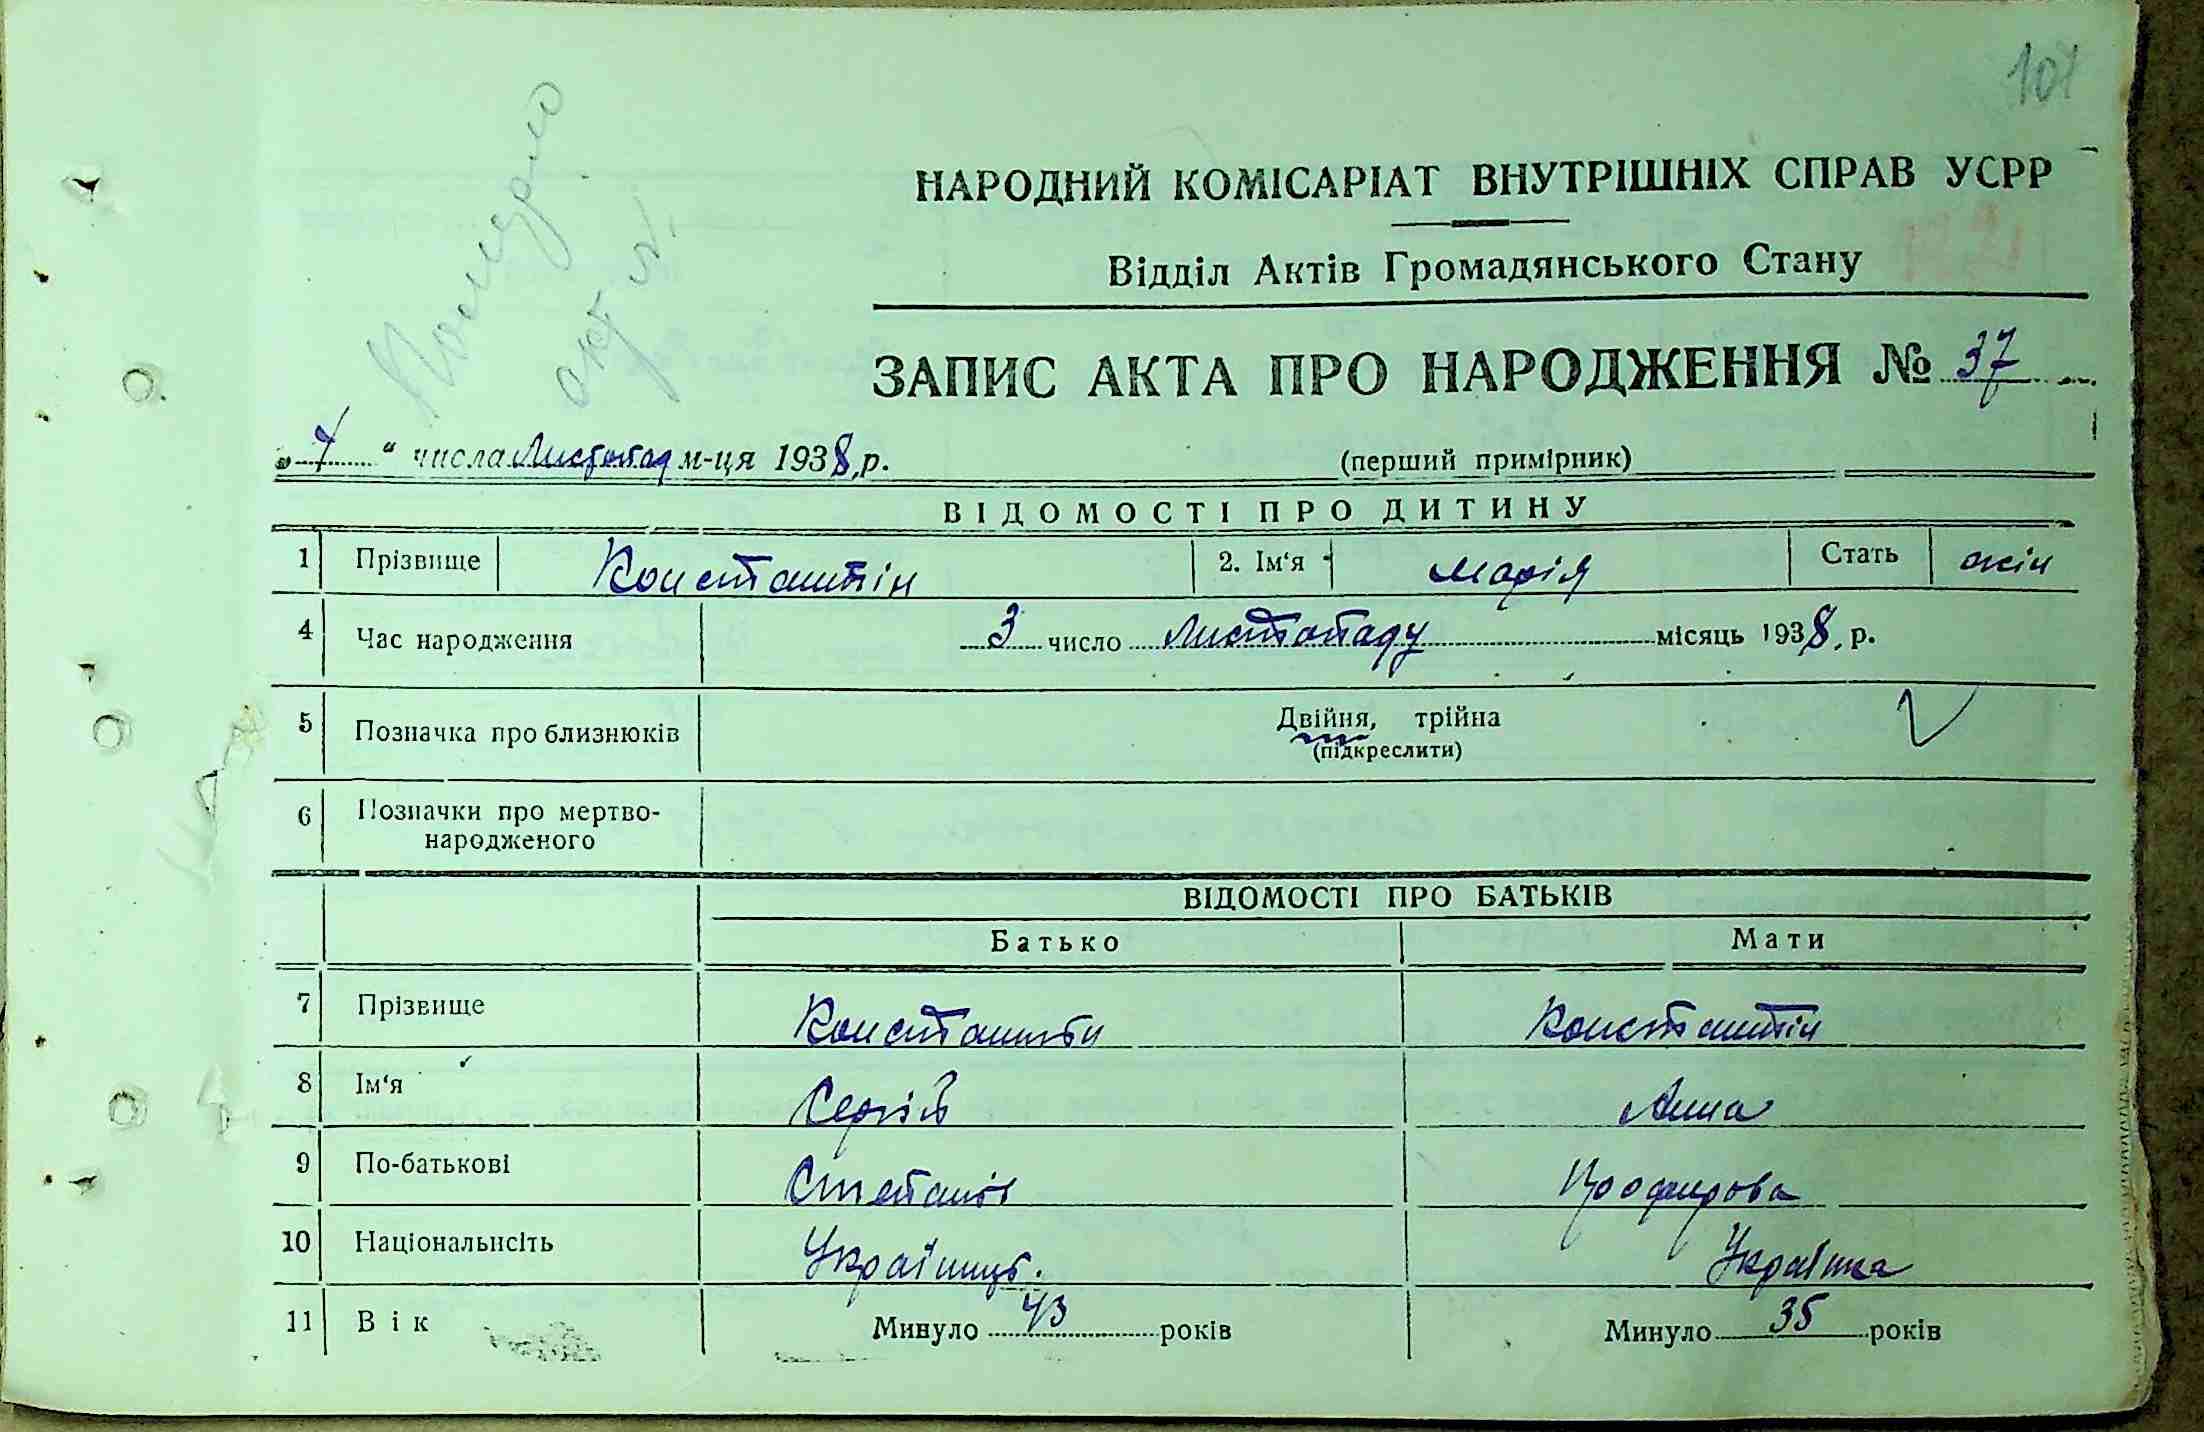 101
НАРОДНИЙ КОМІСАРІАТ ВНУТРІШНІХ СПРАВ УСРР
Відділ Актів Громадянського Стану
ЗАПИС АКТА ПРО НАРОДЖЕННЯ № 37
„7“ числа Листопад м-ця 1938 р.
(перший примірник)
ВІДОМОСТІ ПРО ДИТИНУ
1 Прізвище Константін 2. Ім‘я Марія Стать жін
4 Час народження 3 число Листопаду місяць 1938 р.
5 Позначка про близнюків Двійня, трійна
(підкреслити)
6 Позначки про мертво-
народженого
ВІДОМОСТІ ПРО БАТЬКІВ
Батько Мати
7 Прізвище Константин Константін
8 Ім‘я Сергій Анна
9 По-батькові Степанов Профирова
10 Національнсіть Українець. Українка
11 Вік Минуло 43 років Минуло 35 років